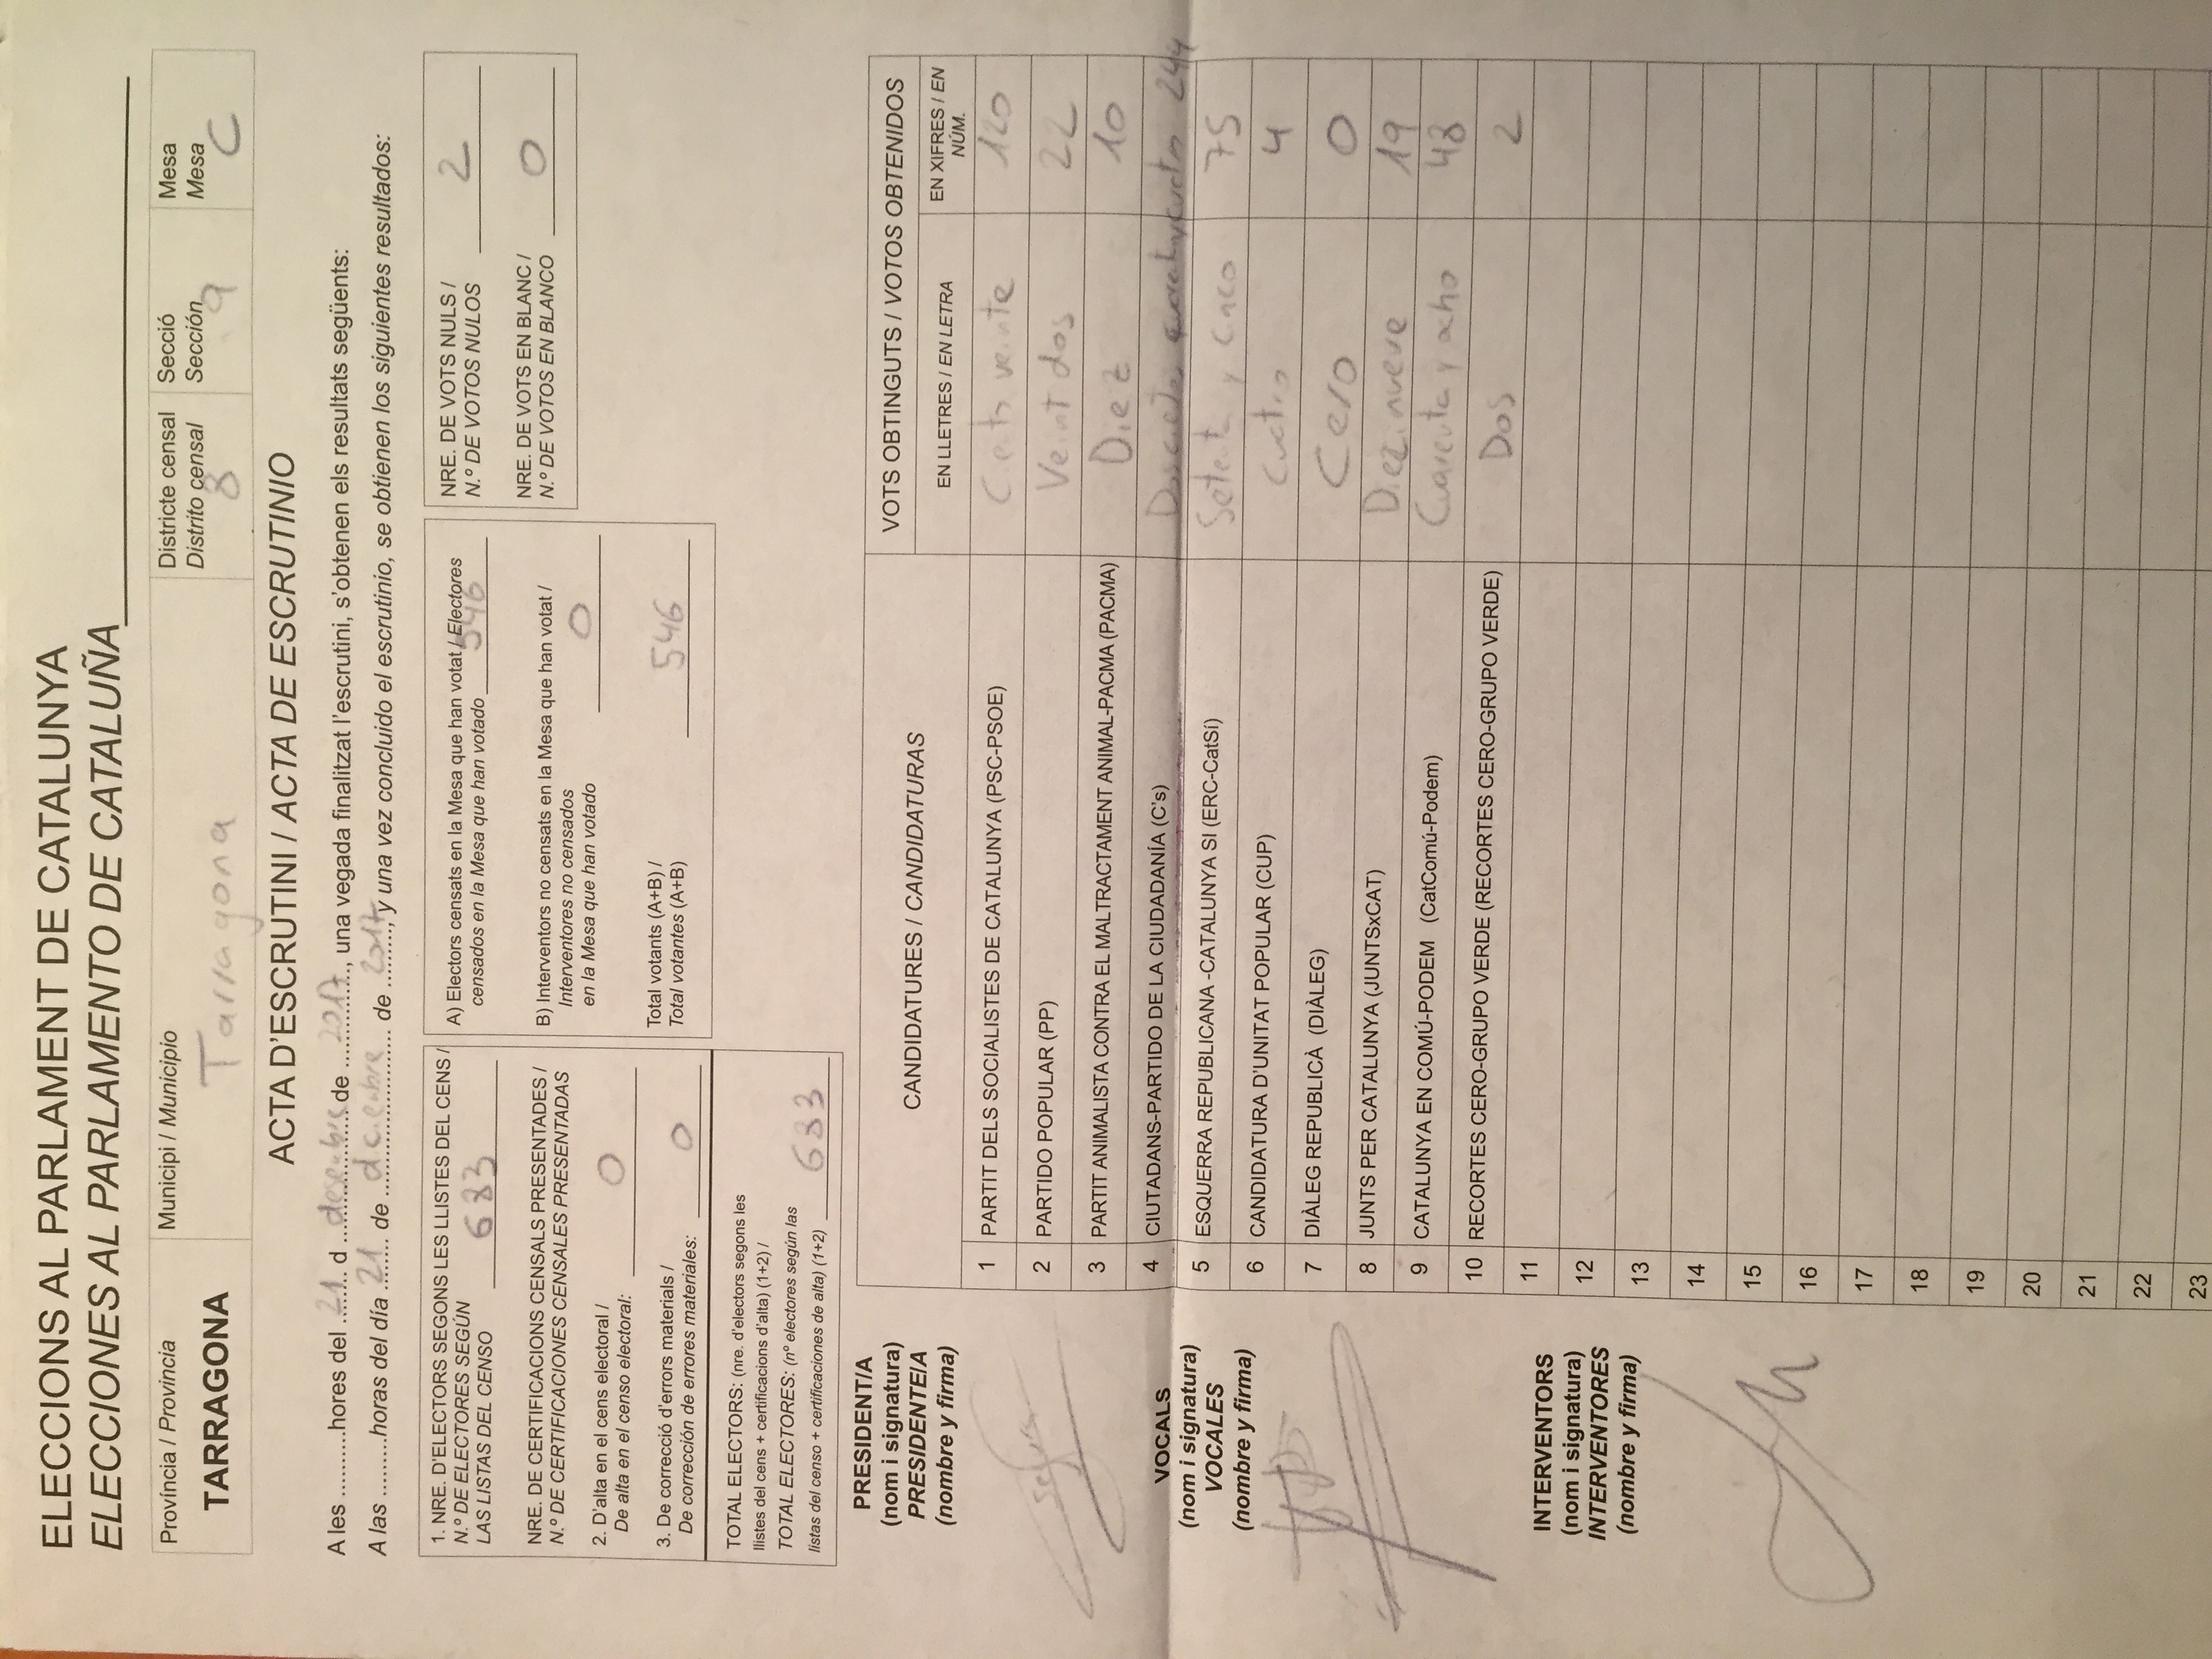 ELECCIONS AL PARLAMENT DE CATALUNYA
ELECCIONES AL PARLAMENTO DE CATALUÑA
Província / Provincia
TARRAGONA
Municipi / Municipio
Tarragona
Districte censal
Distrito censal
8
Secció
Sección
9
Mesa
Mesa
C
ACTA D'ESCRUTINI / ACTA DE ESCRUTINIO
A les ..........hores del 21 d desembre de 2017, una vegada finalitzat l'escrutini, s'obtenen els resultats següents:
A las .........horas del día 21 de diciembre de 2017, y una vez concluido el escrutinio, se obtienen los siguientes resultados:
1. NRE. D'ELECTORS SEGONS LES LLISTES DEL CENS /
N.º DE ELECTORES SEGÚN
LAS LISTAS DEL CENSO 683
NRE. DE CERTIFICACIONS CENSALS PRESENTADES /
N.º DE CERTIFICACIONES CENSALES PRESENTADAS
2. D'alta en el cens electoral /
De alta en el censo electoral: 0
3. De correcció d'errors materials /
De corrección de errores materiales: 0
TOTAL ELECTORS: (nre. d'electors segons les
llistes del cens + certificacions d'alta) (1+2) /
TOTAL ELECTORES: (nº electores según las
listas del censo + certificaciones de alta) (1+2) 683
A) Electors censats en la Mesa que han votat / Electores
censados en la Mesa que han votado 546
B) Interventors no censats en la Mesa que han votat /
Interventores no censados
en la Mesa que han votado 0
Total votants (A+B) /
Total votantes (A+B) 546
NRE. DE VOTS NULS /
N.º DE VOTOS NULOS 2
NRE. DE VOTS EN BLANC /
N.º DE VOTOS EN BLANCO 0
PRESIDENT/A
(nom i signatura)
PRESIDENTE/A
(nombre y firma)
VOCALS
(nom i signatura)
VOCALES
(nombre y firma)
INTERVENTORS
(nom i signatura)
INTERVENTORES
(nombre y firma)
CANDIDATURES / CANDIDATURAS
VOTS OBTINGUTS / VOTOS OBTENIDOS
EN LLETRES / EN LETRA
EN XIFRES / EN
NÚM.
1 PARTIT DELS SOCIALISTES DE CATALUNYA (PSC-PSOE) veinte 120
2 PARTIDO POPULAR (PP) Veint dos 22
3 PARTIT ANIMALISTA CONTRA EL MALTRACTAMENT ANIMAL-PACMA (PACMA) Diez 10
4 CIUTADANS-PARTIDO DE LA CIUDADANÍA (C's) 244
5 ESQUERRA REPUBLICANA -CATALUNYA SI (ERC-CatSí) Setenta y cinco 75
6 CANDIDATURA D'UNITAT POPULAR (CUP) 4
7 DIÀLEG REPUBLICÀ (DIÀLEG) Cero 0
8 JUNTS PER CATALUNYA (JUNTSxCAT) Diezinueve 19
9 CATALUNYA EN COMÚ-PODEM (CatComú-Podem) Cuarenta y ocho 48
10 RECORTES CERO-GRUPO VERDE (RECORTES CERO-GRUPO VERDE) Dos 2
11
12
13
14
15
16
17
18
19
20
21
22
23